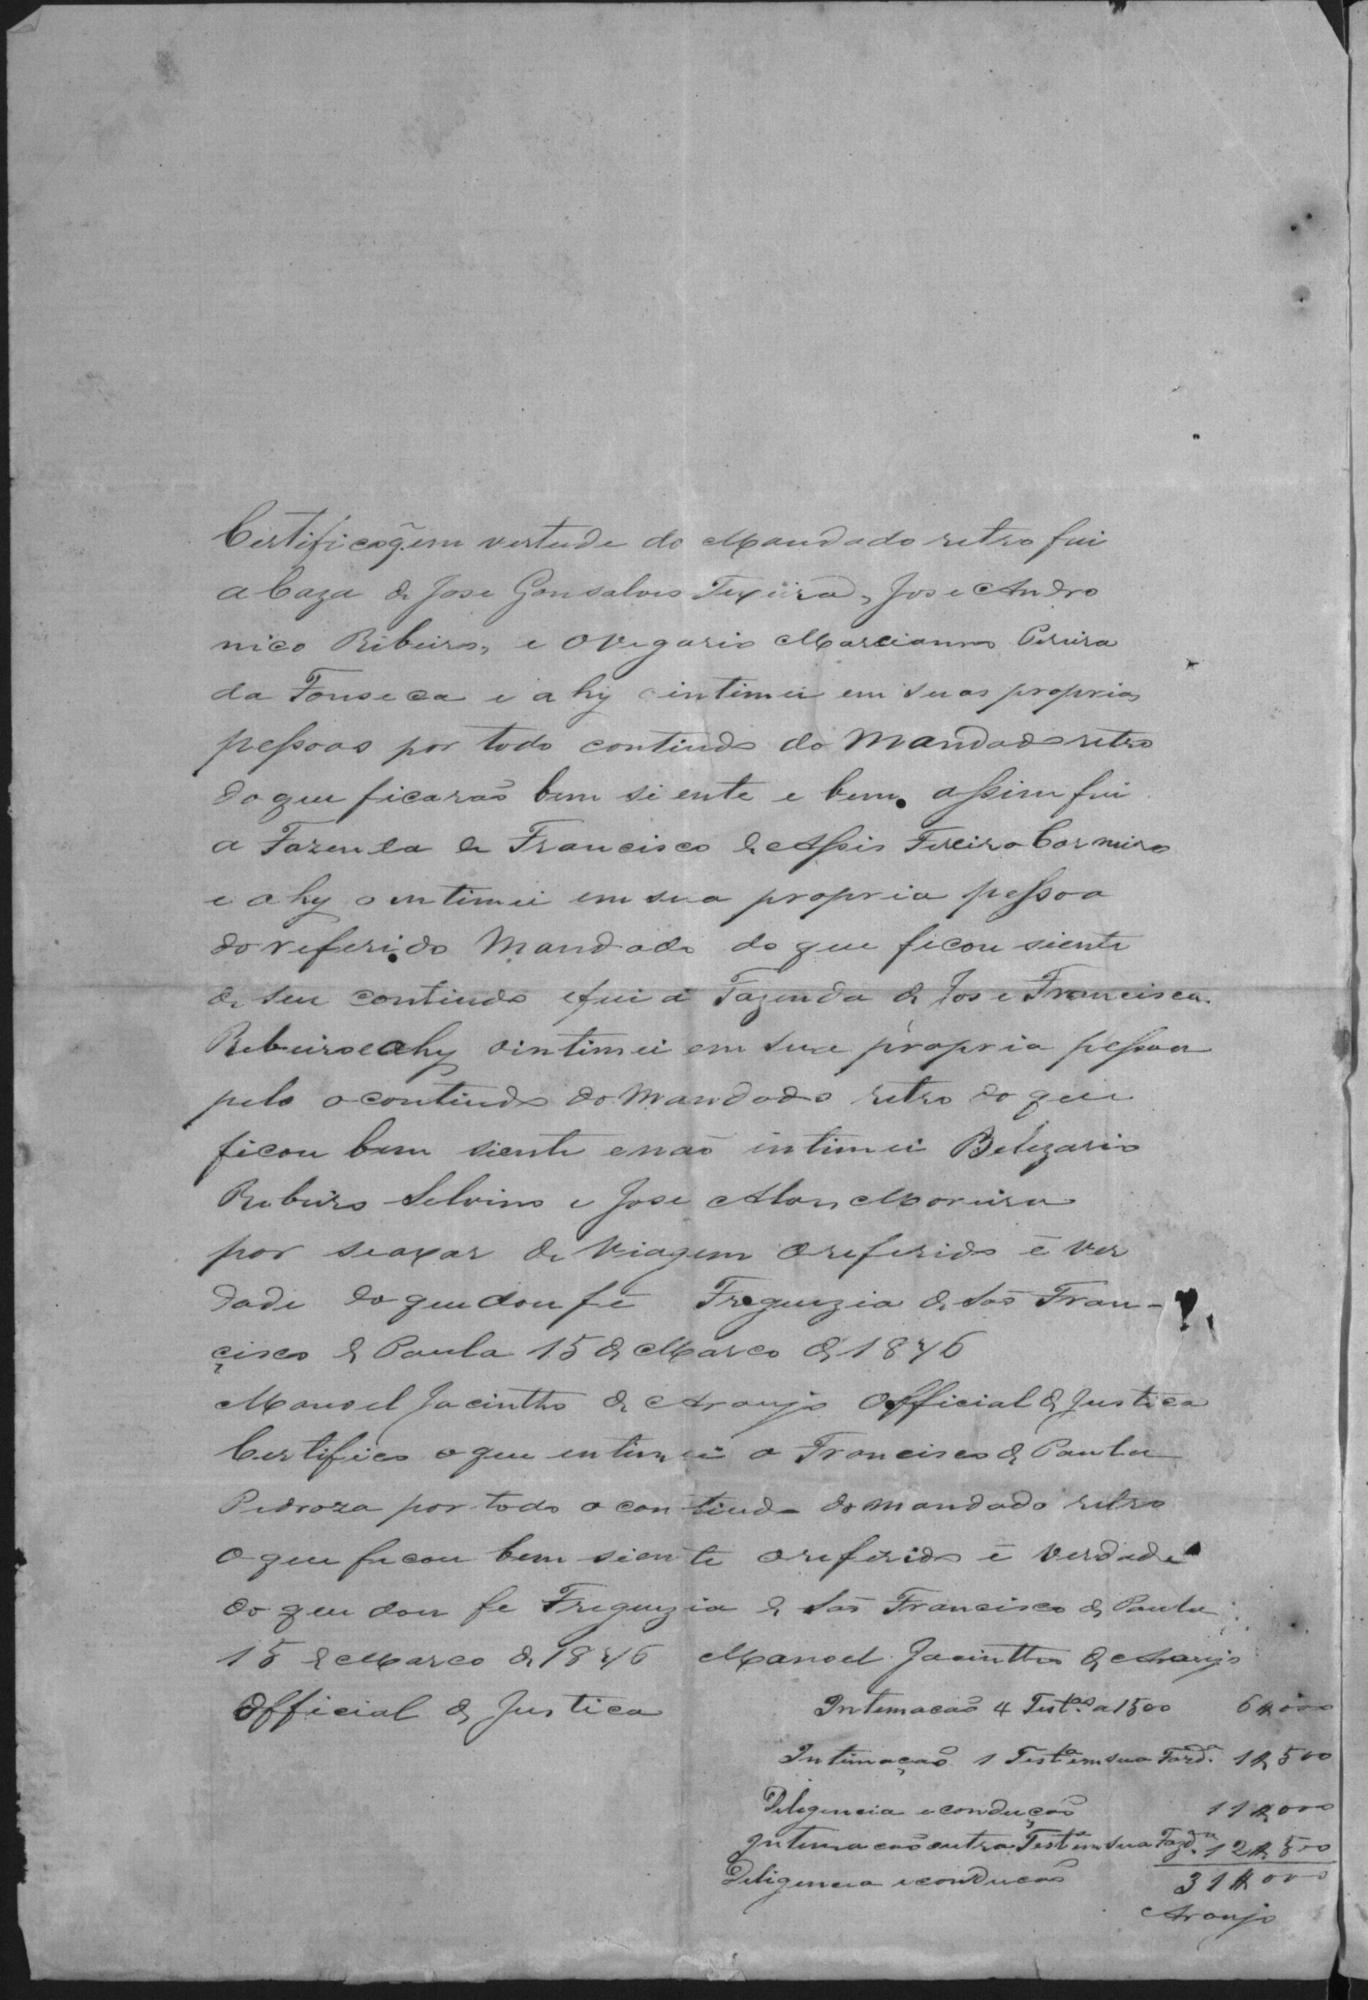 Certifico q̃ em vertude do Mandado retro fui
a Caza de Jose Gonsalves Texeira, Jose Andro
nico Ribeiro, e Ovegario Marcianno Pereira
da Fonseca e ahy ointimei em suas proprias
pessoas por todo contiudo do Mandado retro
do que ficaraõ bem siente e bem assim fui
a Fazenda de Francisco de Assis Fereira Carneiro
e ahy o entimei em sua propria pessoa
do referido Mandado do que ficou siente
de seu contiudo e fui a Fazenda de Jose Francisco
Rebeiro e ahy ointimei em sua propria pessoa
pelo o contiudo do Mandado retro do que
ficou bem siente e naõ intimei Belizario
Ribeiro Selvino e Jose Alves Moreira
por se axar de Viagem O referido é ver
dade do que dou fé Freguezia de Saõ Fran-
cisco de Paula 15 de Março de 1876
Manoel Jacintho de Araujo Official de Justica
Certifico o que entimei a Francisco de Paula
Pedroza por todo o contiudo do mandado retro
O que ficou bem siente o referido é verdade
do que dou fe Freguezia de Saõ Francisco de Paula
15 de Março de 1876 Manoel Jacintho de Araujo
Official de Justica
Intemacaõ 4 Test.as a 1500 6$000
Intimaçaõ 1 Testa em sua Fazd.a 1$500
Deligencia e conduçaõ 11$000
Intimacaõ outra Testa em sua Fazd.a 12$500
Deligencia e conducaõ 31$000
Araujo